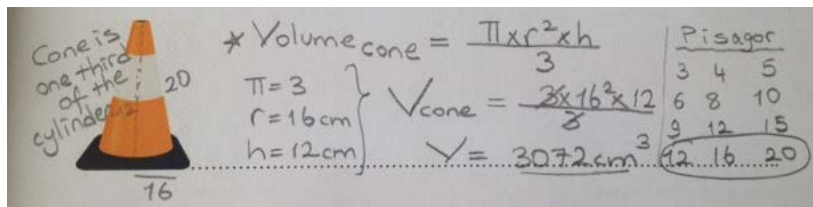 Cone is
one third
of the
cylinder
12
20
16
* Volume cone = π x r² x h / 3
π = 3
r = 16 cm
h = 12 cm
V cone = 3 x 16² x 12 / 3
V = 3072 cm³
Pisagor
3 4 5
6 8 10
9 12 15
12 16 20